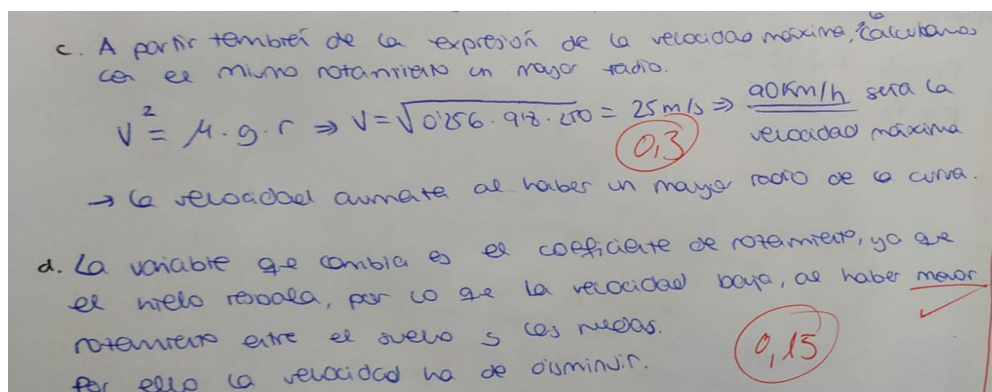 c. A partir tembreí de la expresión de la velocidad máxima, calculamos
con el mismo rotamiento un mayor radio.
V² = μ·g·r ⇒ V = √0'256·9'8·250 = 25 m/s ⇒ 90 km/h será la
velocidad máxima
0,3
→ la velocidad aumenta al haber un mayor radio de la curva.
d. La variable que cambia es el coeficiente de rozamiento, ya que
el hielo resbala, por lo que la velocidad baja, al haber menor
rozamiento entre el suelo y las ruedas.
0,15
Por ello la velocidad ha de disminuir.